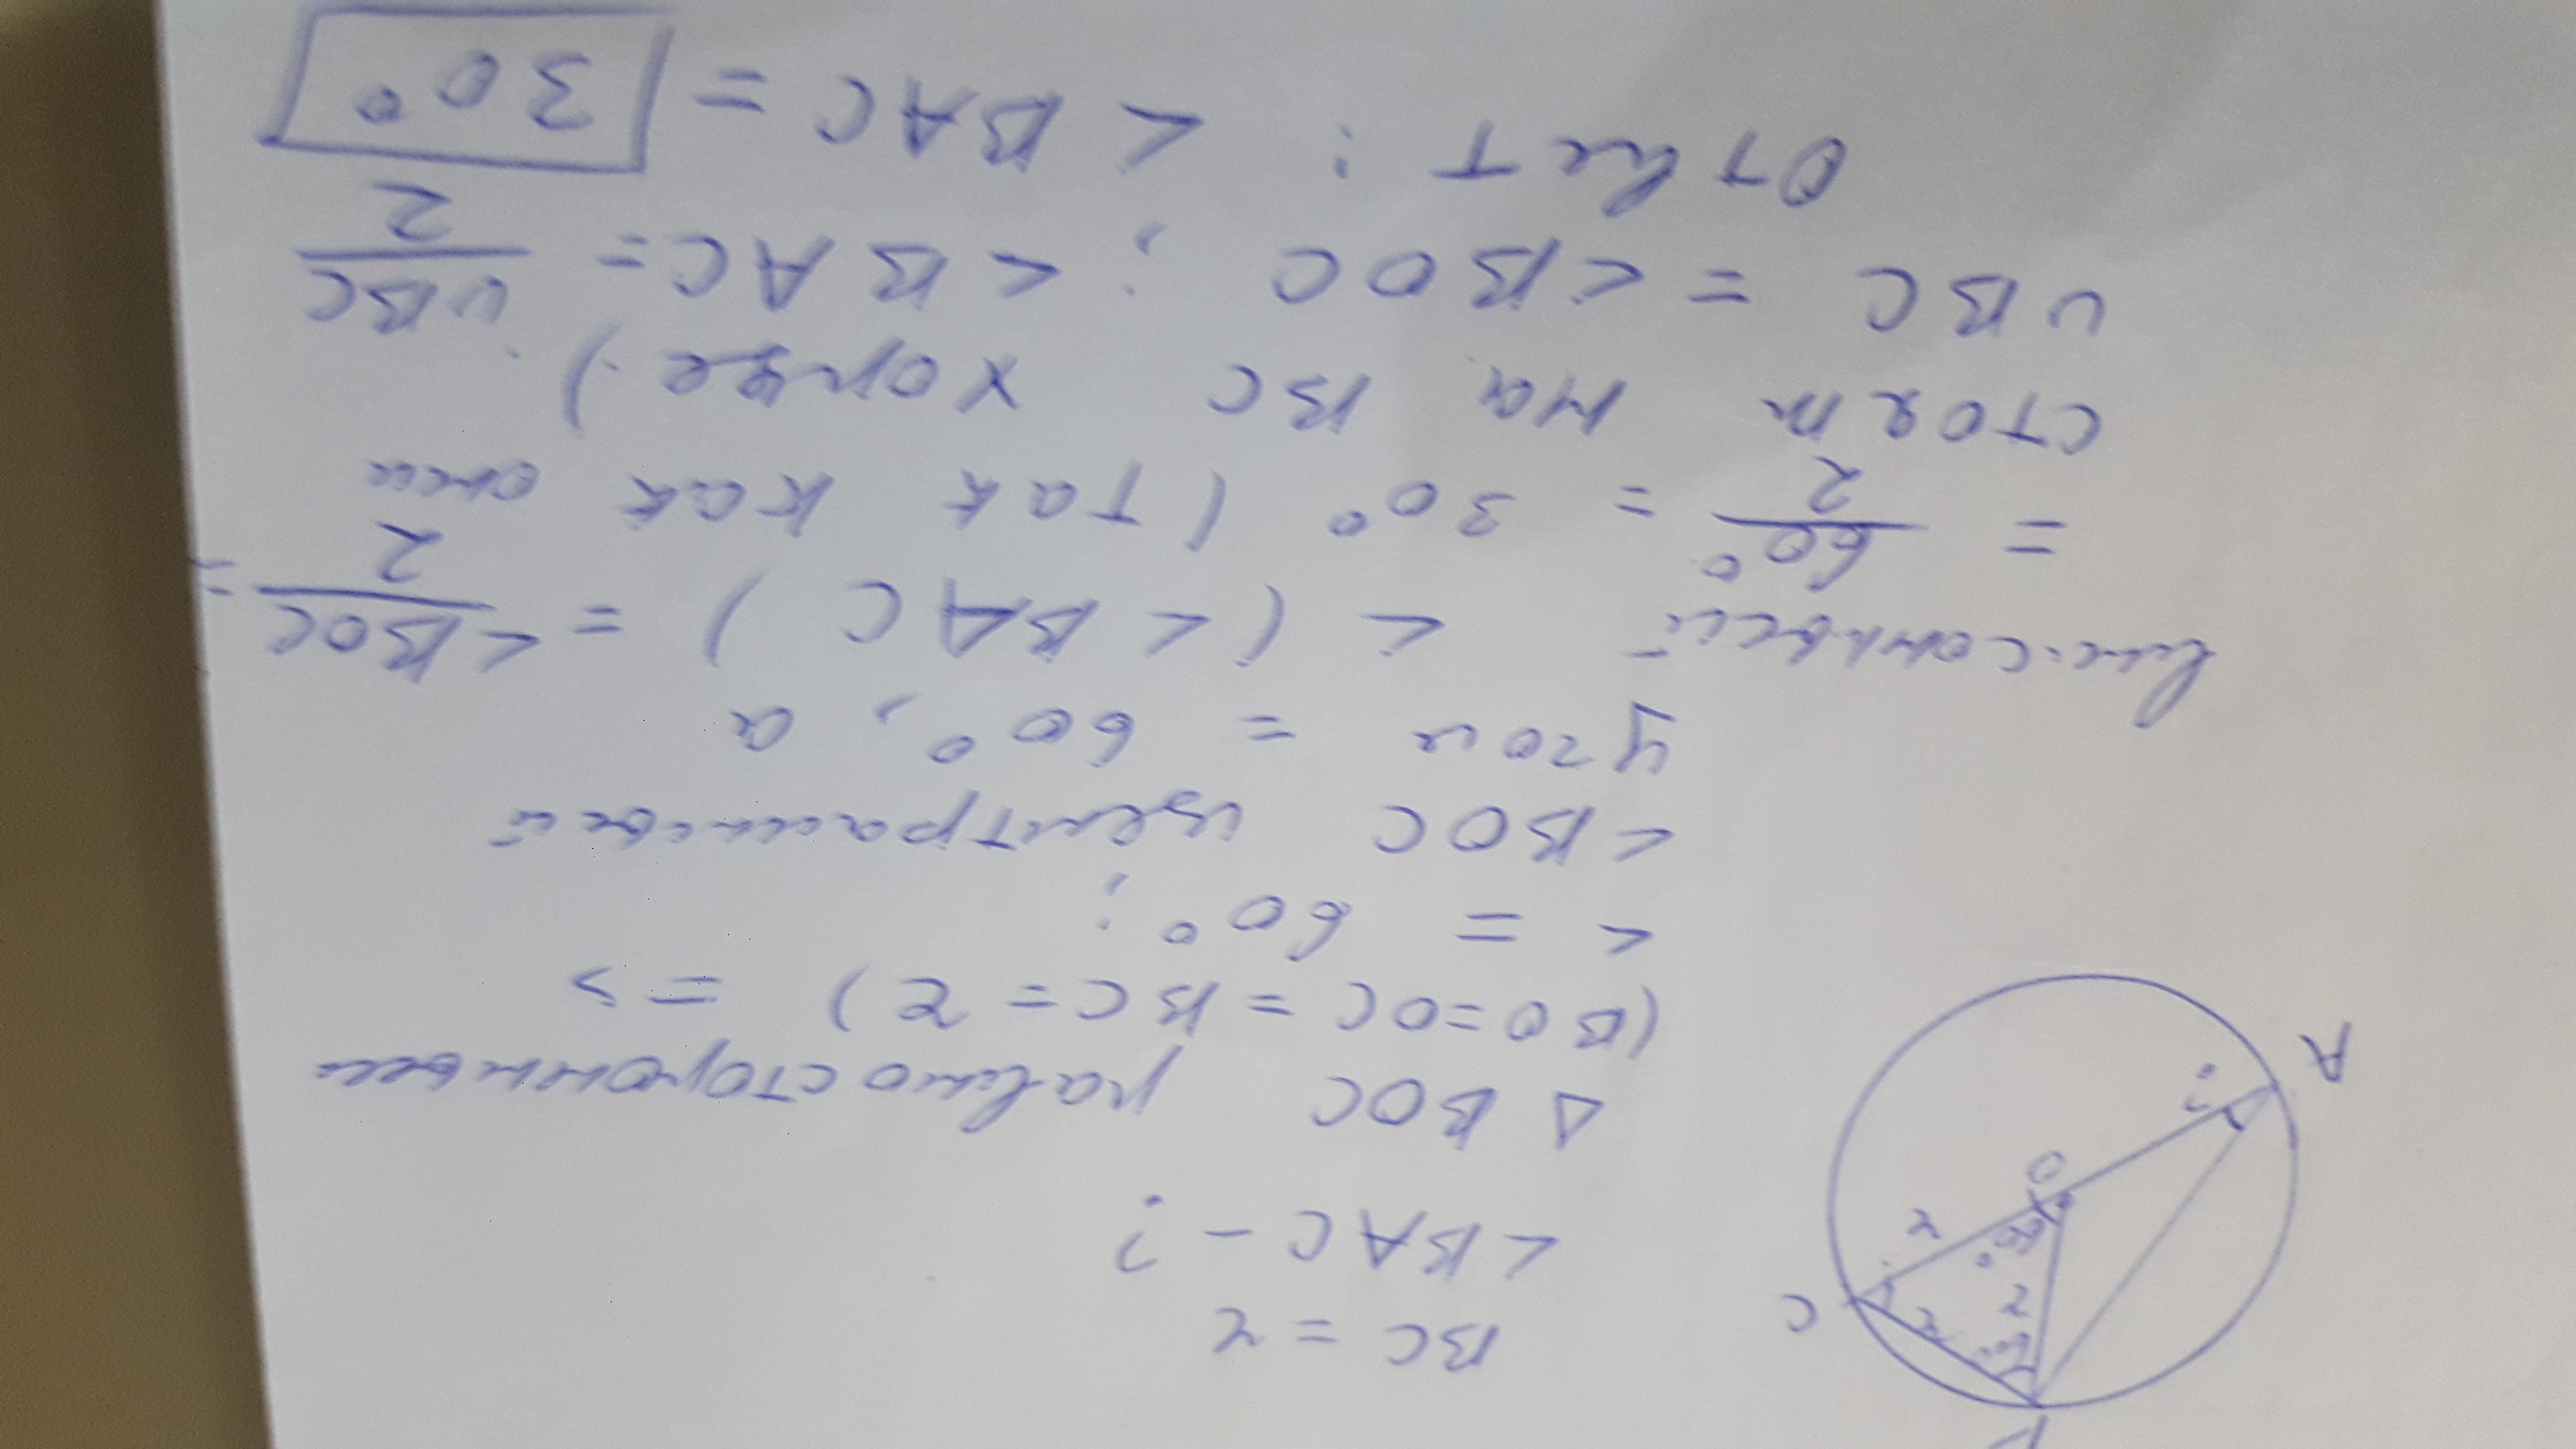 B
C
A
O
60°
60°
r
r
r
?
BC = r
< BAC - ?
Δ BOC равносторонний
(BO = OC = BC = r) =>
< = 60°;
< BOC центральный
угол = 60°, а
< (< BAC) = <BOC/2 =
= 60°/2 = 30° (так как они
стоят на BC хорде)
∪BC = <BOC; <BAC = ∪BC/2
Ответ: < BAC = 30°